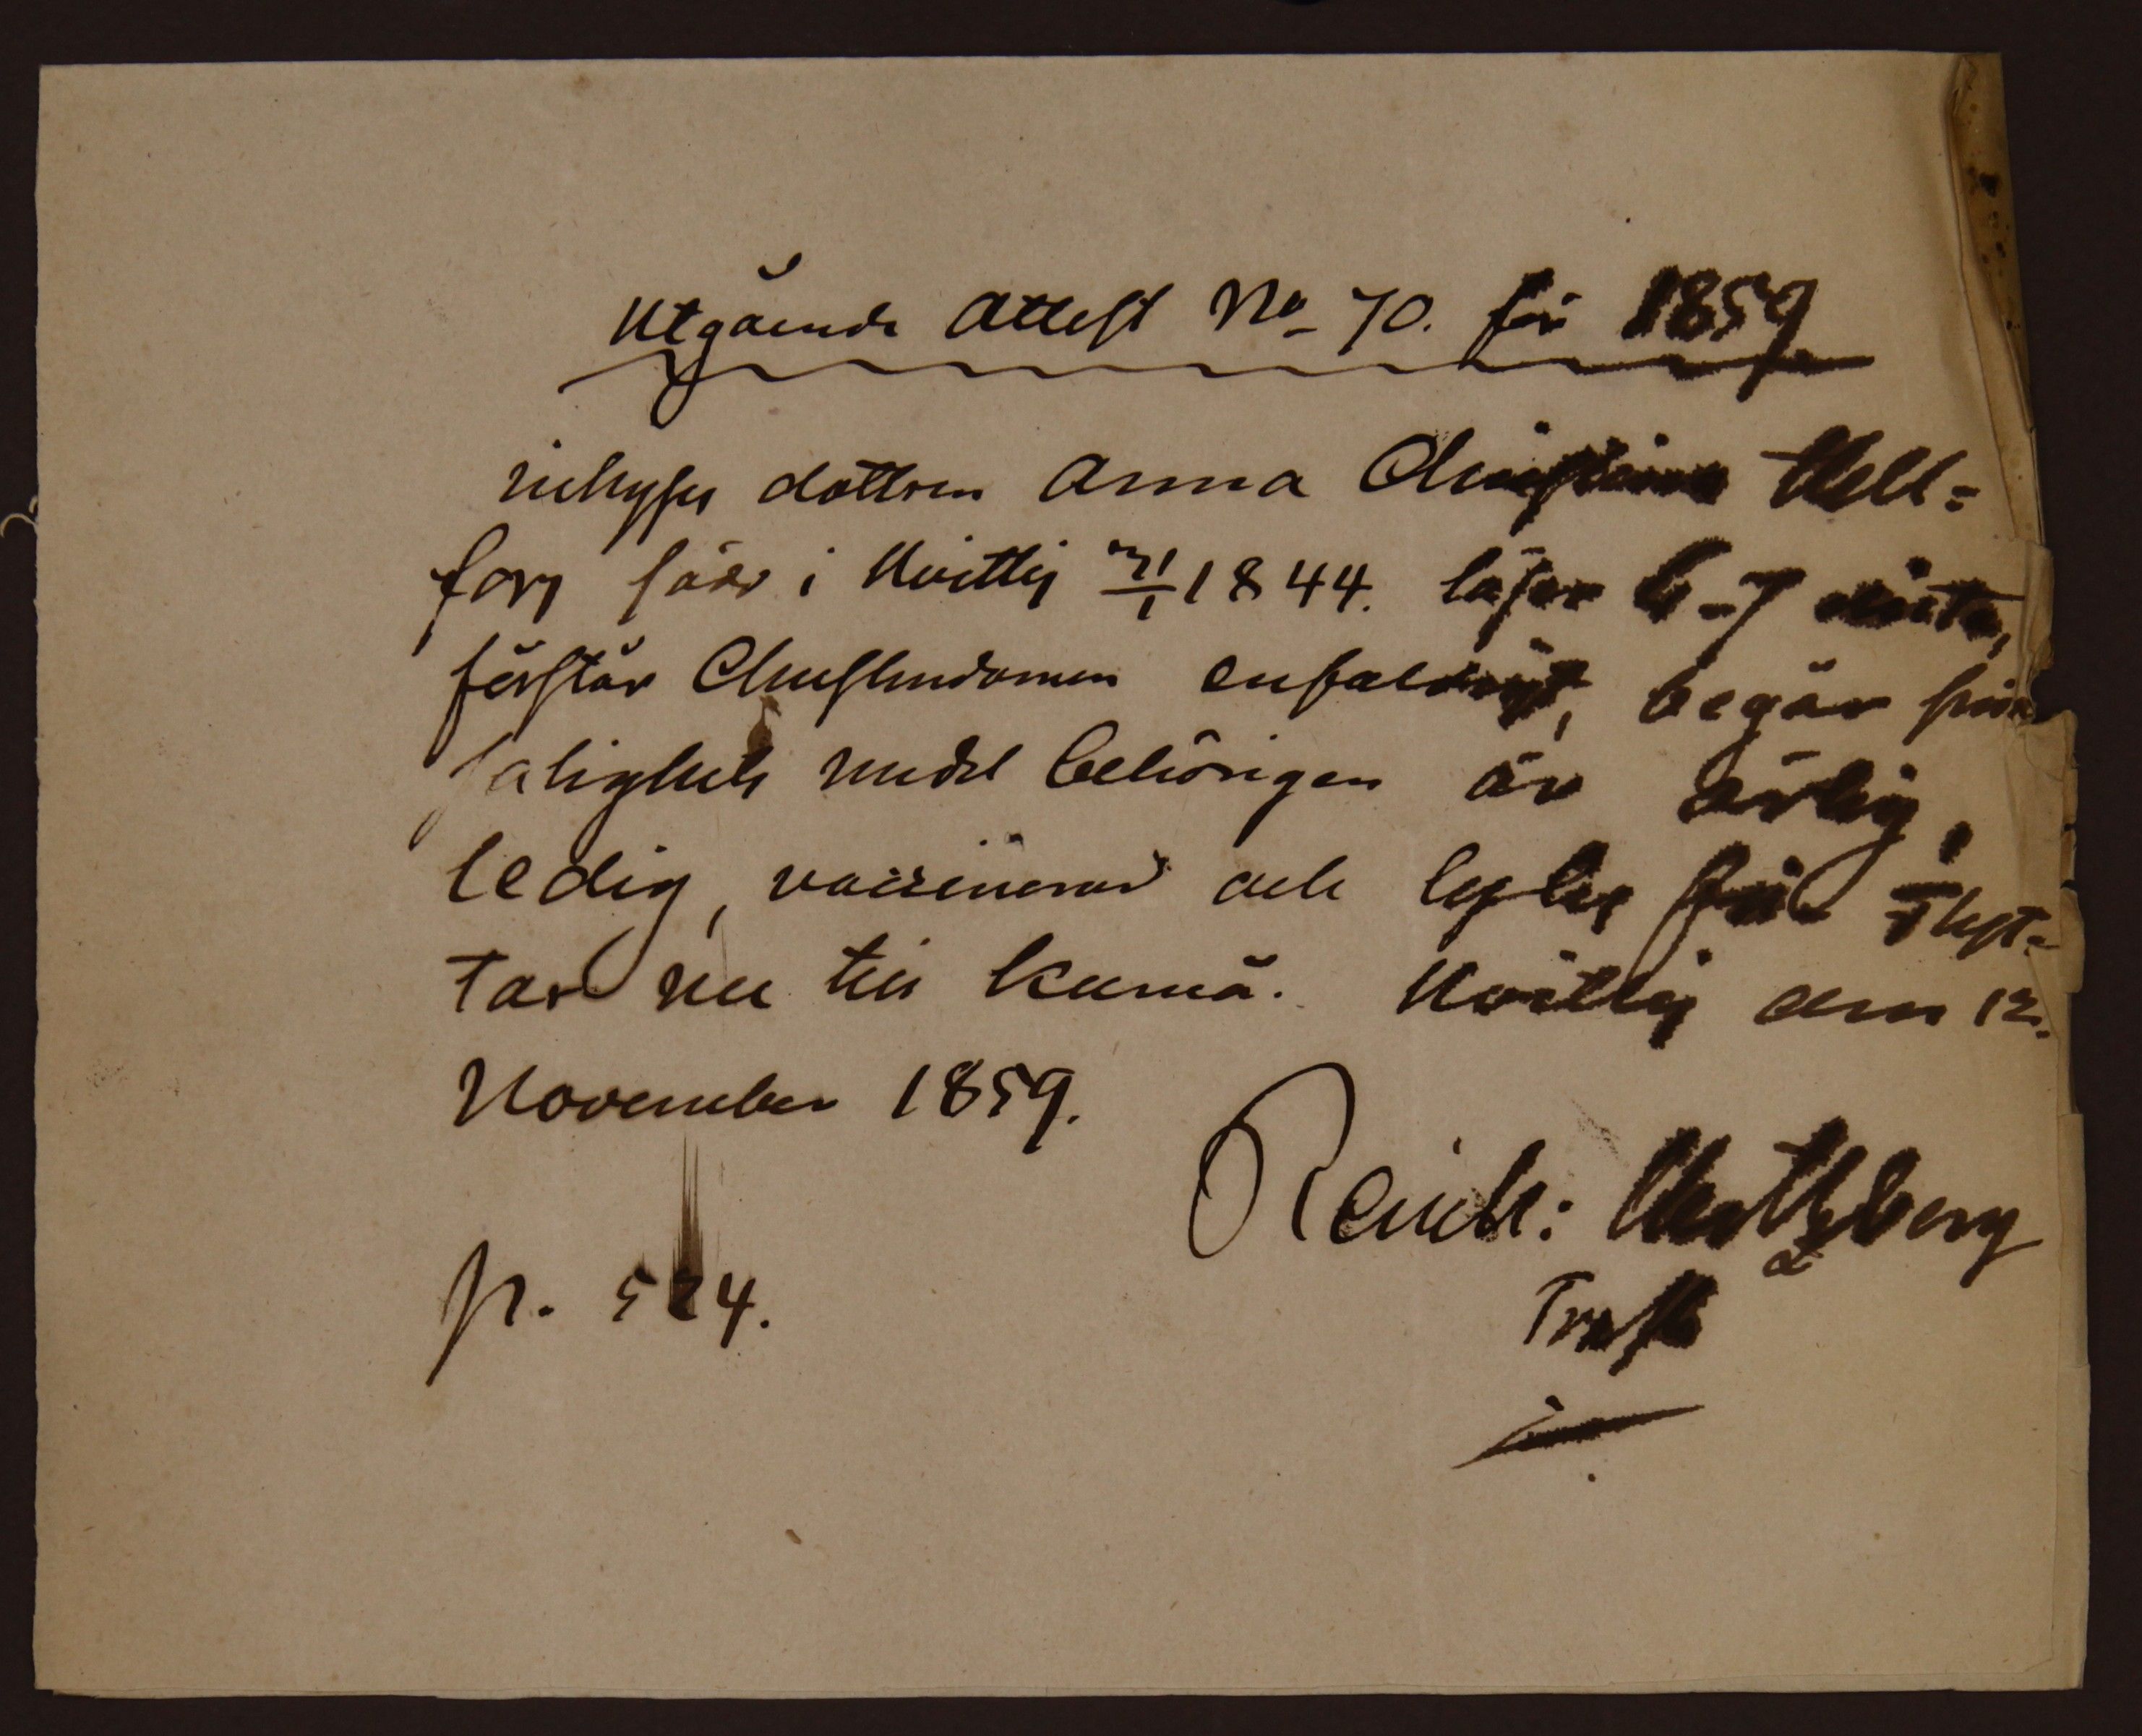 Utgående Attest No 70. för 1859
inhyses dottren Anna Christina Hell=
fors född i Hvittis 31/1 1844. läser 6-7
förstår Christendomen enfaldigt, begår sina
salighets medel behörigen är ärlig,
ledig, vaccinerad och lyklig för flyt=
tar nu till Kumå. Hvittis den 12.
November 1859.
Reinh:
p. 524.